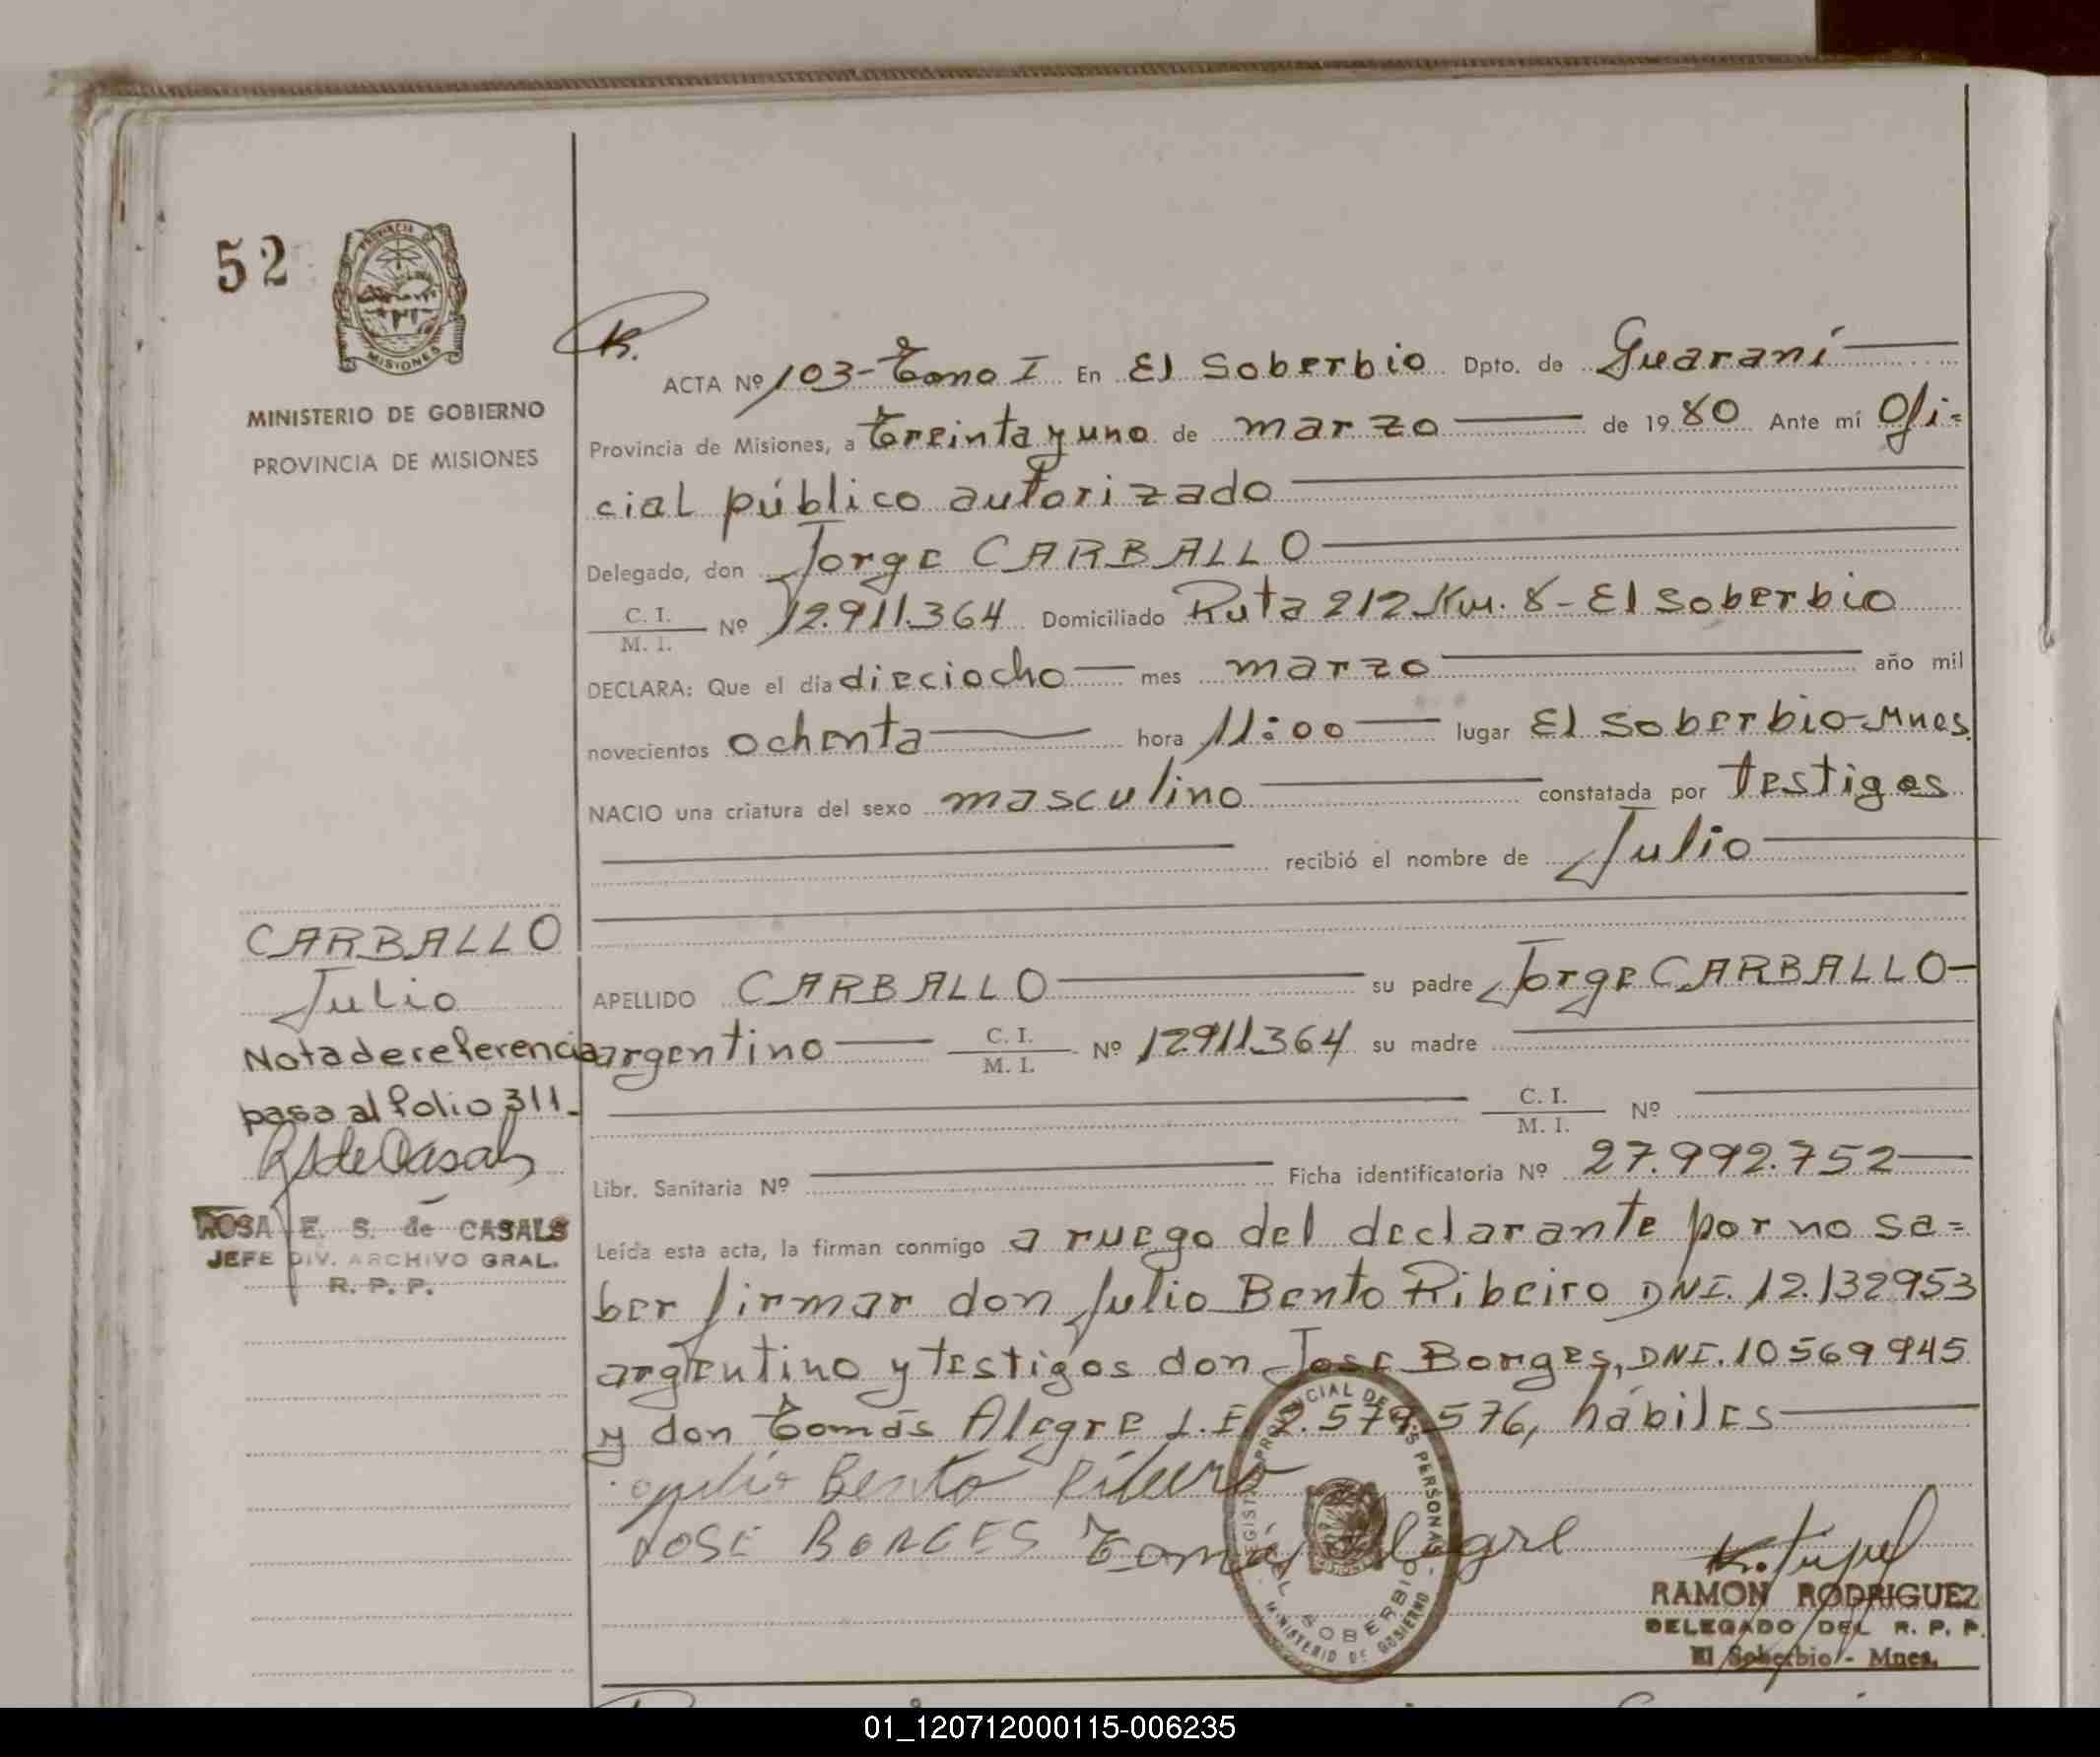 52
PROVINCIA DE
MISIONES
MINISTERIO DE GOBIERNO
PROVINCIA DE MISIONES
R.
ACTA Nº 103-Tomo I En El Soberbio Dpto. de Guaraní
Provincia de Misiones, a treinta y uno de marzo de 1980 Ante mí Ofi=
cial público autorizado
Delegado, don Jorge CARBALLO
C. I.
M. I. Nº 12.911.364 Domiciliado Ruta 212 Km. 8- El Soberbio
DECLARA: Que el día dieciocho mes marzo año mil
novecientos ochenta hora 11:00 lugar El Soberbio-Mnes.
NACIO una criatura del sexo masculino constatada por testigos
recibió el nombre de Julio
CARBALLO
Julio
Nota de referencia
pasa al folio 311.
ROSA E. S. de CASALS
JEFE DIV. ARCHIVO GRAL.
R. P. P.
APELLIDO CARBALLO su padre Jorge CARBALLO-
argentino C. I.
M. I. Nº 12911364 su madre
C. I.
M. I. Nº
Libr. Sanitaria Nº Ficha identificatoria Nº 27.992.752
Leída esta acta, la firman conmigo a ruego del declarante por no sa=
ber firmar don Julio Bento Ribeiro DNI. 12.132953
argentino y testigos don José Borges, DNI. 10569945
y don Tomás Alegre L.E. 2.579.576, hábiles
Julio Bento Ribeiro
JOSE BORGES Tomás Alegre
REGISTRO PROVINCIAL DE LAS PERSONAS
EL SOBERBIO
MINISTERIO DE GOBIERNO
RAMON RODRIGUEZ
DELEGADO DEL R. P. P.
El Soberbio - Mnes.
01_120712000115-006235